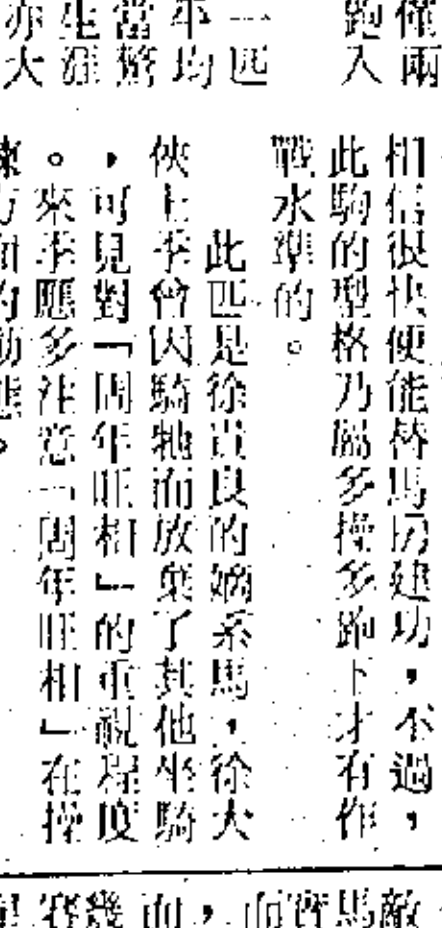 僅兩
跑入
一匹
平均
當驚
生涯
亦大
相信很快便能替馬房建功，不過，
此駒的型格乃屬多操多跑下才有作
戰水準的。
此匹是徐貴良的嫡系馬，徐大
俠上季曾因騎牠而放棄了其他坐騎
，可見對「周年旺相」的重視程度
。來季應多注意「周年旺相」在操
練方面的動態。